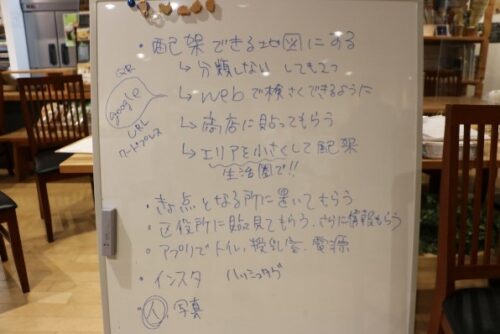 ・配架できる地図にする
↳分類しない しても2つ
↳webで検さくできるように
QR
google
URL
ワードプレス
↳商店に貼ってもらう
↳エリアを小さくして配架
生活圏で!!
・拠点となる所に置いてもらう
・区役所に貼見てもらう、さらに情報もらう
・アプリでトイレ、授乳室、電源
・インスタ ハッシュタグ
・人、写真